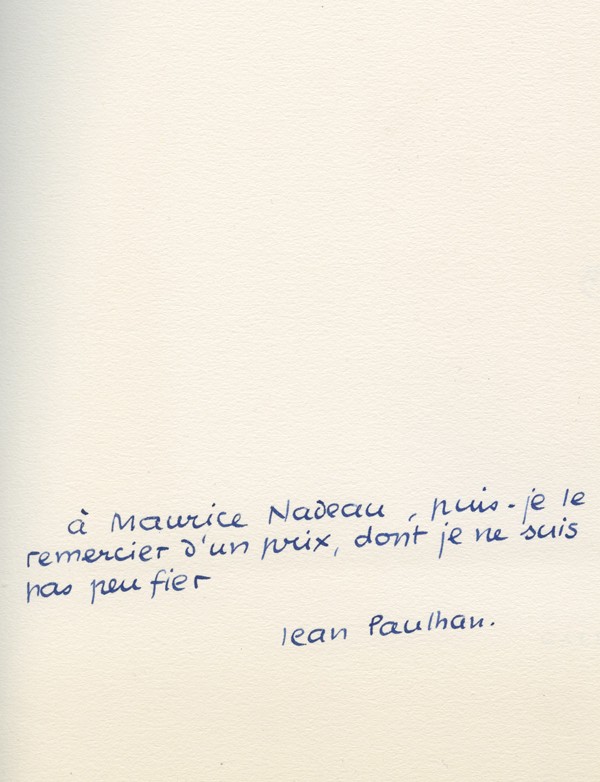 à Maurice Nadeau, puis-je le
remercier d'un prix, dont je ne suis
pas peu fier
Jean Paulhan.